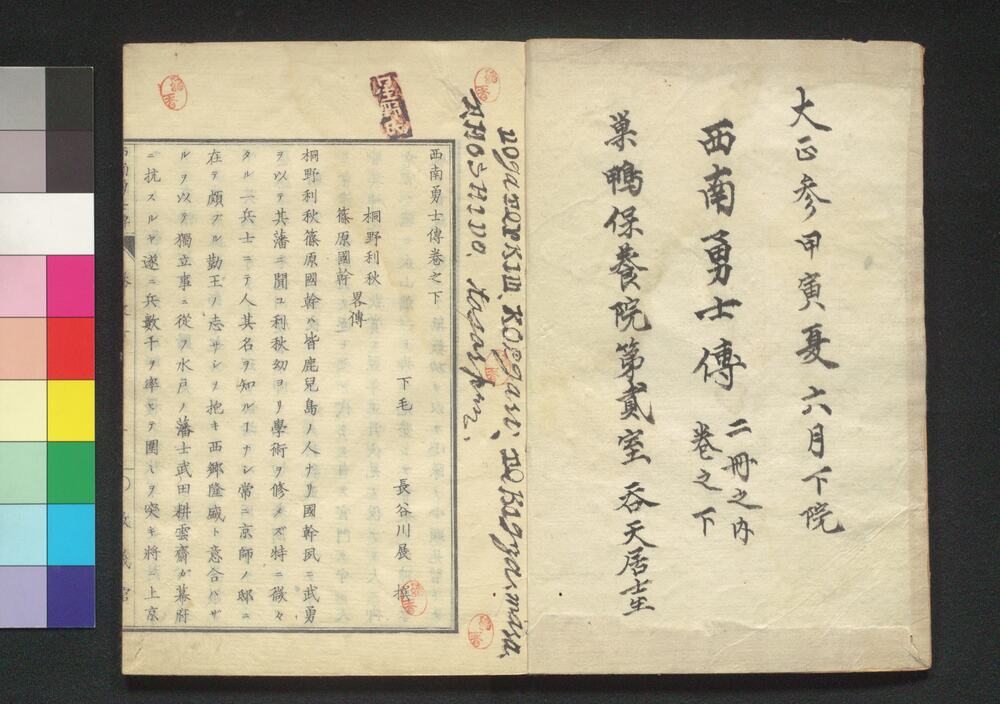 大正参甲寅夏六月下院
西南勇士傳 二冊之内
巻之下
巣鴨保養院第貳室 呑天居士
西南勇士傳巻之下
下毛 長谷川展 撰
桐野利秋
篠原國幹 畧傳
桐野利秋篠原國幹ハ皆鹿兒島ノ人ナリ國幹夙ニ武勇
ヲ以テ其藩ニ聞ユ利秋幼ヨリ學術ヲ修メズ特ニ微々
タル一兵士ニテ人其名ヲ知ルヿナシ常ニ京師ノ邸ニ
在テ頗ブル勤王ノ志ザシヲ抱キ西郷隆盛ト意合ハザ
ルヲ以テ獨立事ニ從フ水戸ノ藩士武田耕雲齋ガ幕府
ニ抗スルヤ遂ニ兵數千ヲ率ヒテ圍ミヲ突キ將ニ上京